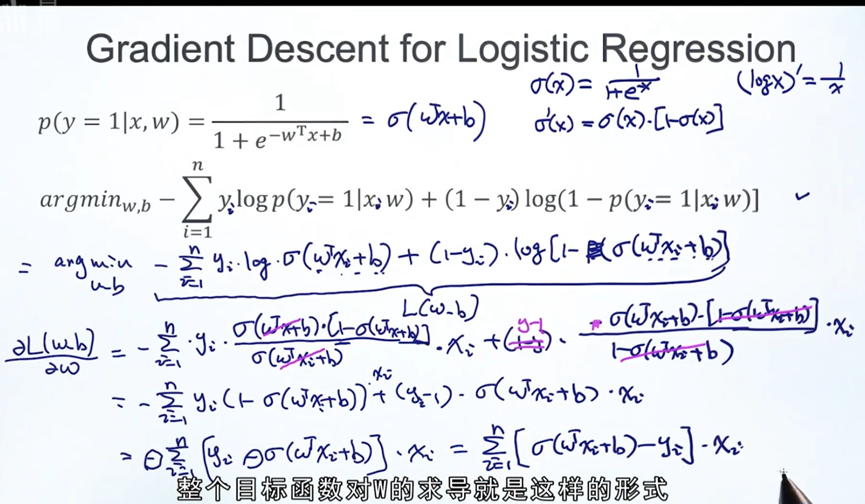 Gradient Descent for Logistic Regression
σ(x) = 1/(1+e^-x) (log x)' = 1/x
p(y = 1|x, w) = 1/(1 + e^(-w^T x+b)) = σ(w^T x+b) σ'(x) = σ(x)·[1-σ(x)]
argmin_{w,b} − ∑_{i=1}^{n} y_i log p(y_i = 1|x_i, w) + (1 − y_i) log(1 − p(y_i = 1|x_i, w)] ✓
= argmin_{w,b} − ∑_{i=1}^{n} y_i·log·σ(w^T x_i+b) + (1−y_i)·log[1− σ(w^T x_i+b)]
L(w,b)
∂L(w,b)/∂w = − ∑_{i=1}^{n} · y_i · σ(w^T x_i+b)·[1−σ(w^T x_i+b)]/σ(w^T x_i+b) · x_i + (y−1) · σ(w^T x_i+b)·[1−σ(w^T x_i+b)]/1−σ(w^T x_i+b) · x_i
= − ∑_{i=1}^{n} y_i (1−σ(w^T x_i+b))·x_i + (y_i−1)·σ(w^T x_i+b)·x_i
= ⊖ ∑_{i=1}^{n} [y_i ⊖ σ(w^T x_i+b)]·x_i = ∑_{i=1}^{n} [σ(w^T x_i+b) − y_i]·x_i
整个目标函数对W的求导就是这样的形式